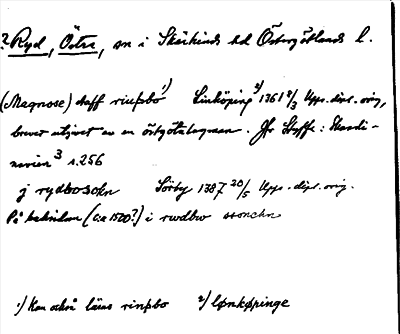 ? Ryd, Östra, sn i Skärkinds hd Östergötlands l.
(Magnose) haff rinpbo 1) Linköping 2) 1361 2/3 Upps. dipl. orig,
brevet utgivet av en östgötalagman. Jfr Styffe: Skandi-
navien 3 s. 256
j rydbosokn Sörby 1387 20/5 Upps. dipl. orig.
På baksidan (c:a 1500?) i rwdbw sonckn
1) Kan också läsas rinsbo 2) lønkøpinge